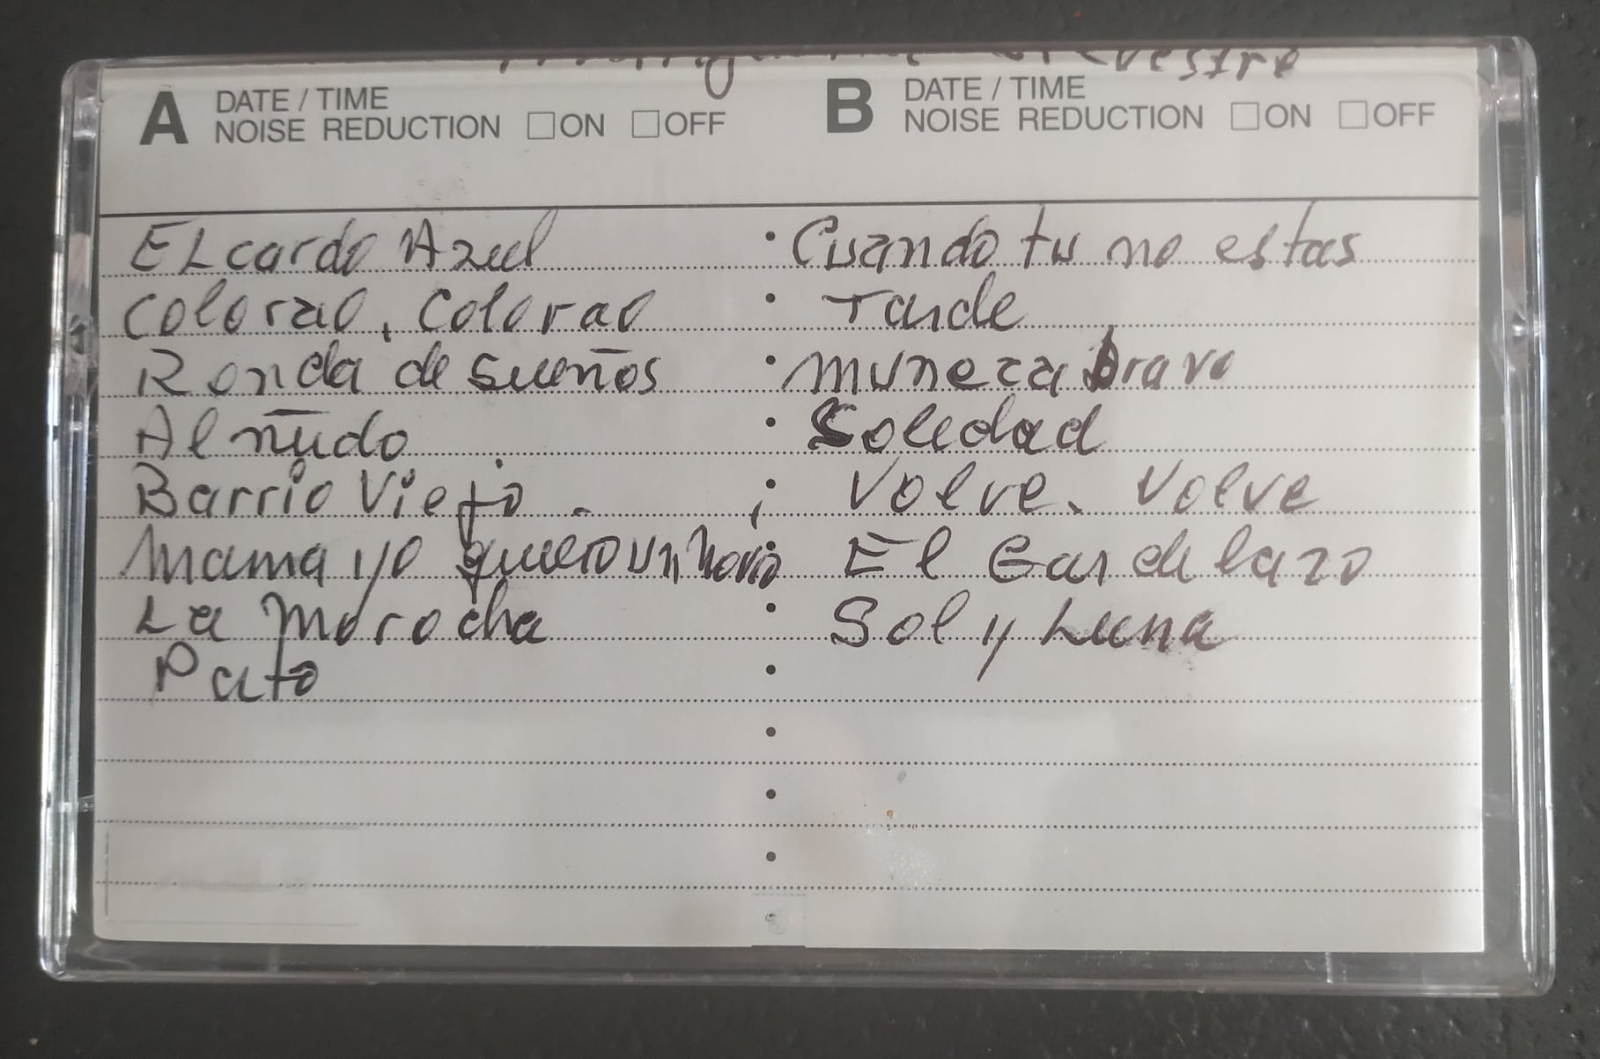 A DATE / TIME
NOISE REDUCTION ☐ON ☐OFF
B DATE / TIME
NOISE REDUCTION ☐ON ☐OFF
EL cardo Azul
Colorao, Colorao
Ronda de sueños
Al ñudo
Barrio Viejo
Mama yo quiero un novio
La Morocha
Pato
Cuando tu no estas
Tarde
Muneca brava
Soledad
Volve, Volve
El Gardelazo
Sol y Luna